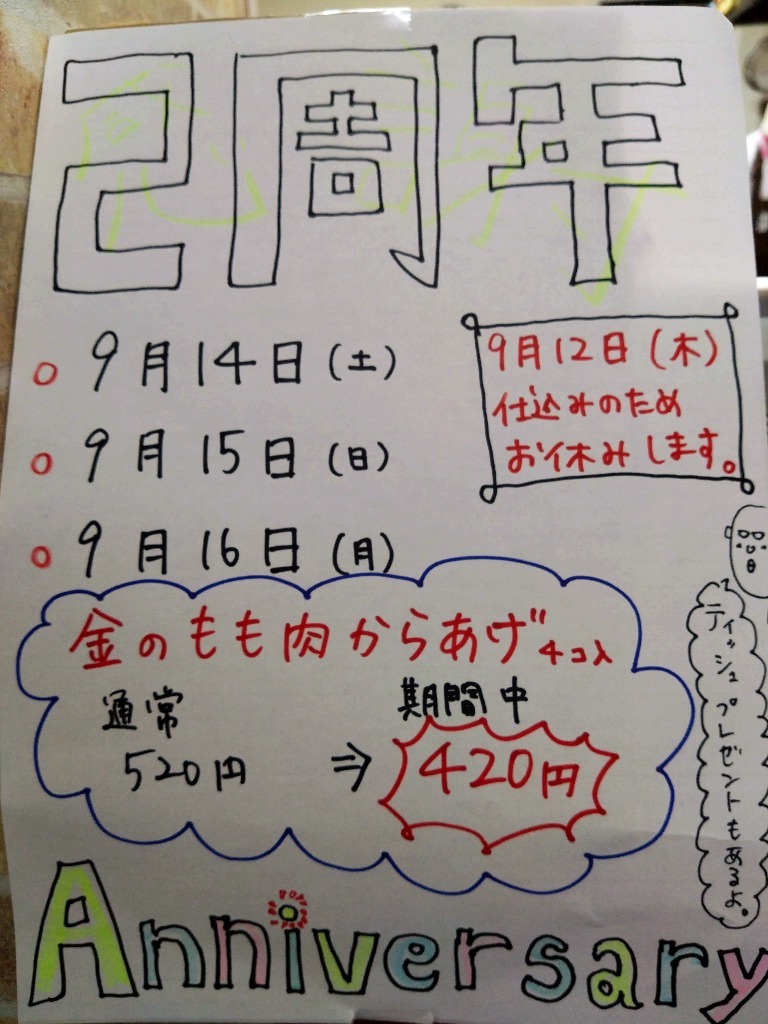 2周年
9月14日(土)
9月15日(日)
9月16日(月)
9月12日(木)
仕込みのため
お休みします。
金のもも肉からあげ4コ入
通常
520円
⇒
期間中
420円
ティッシュプレゼントもあるよ。
Anniversary